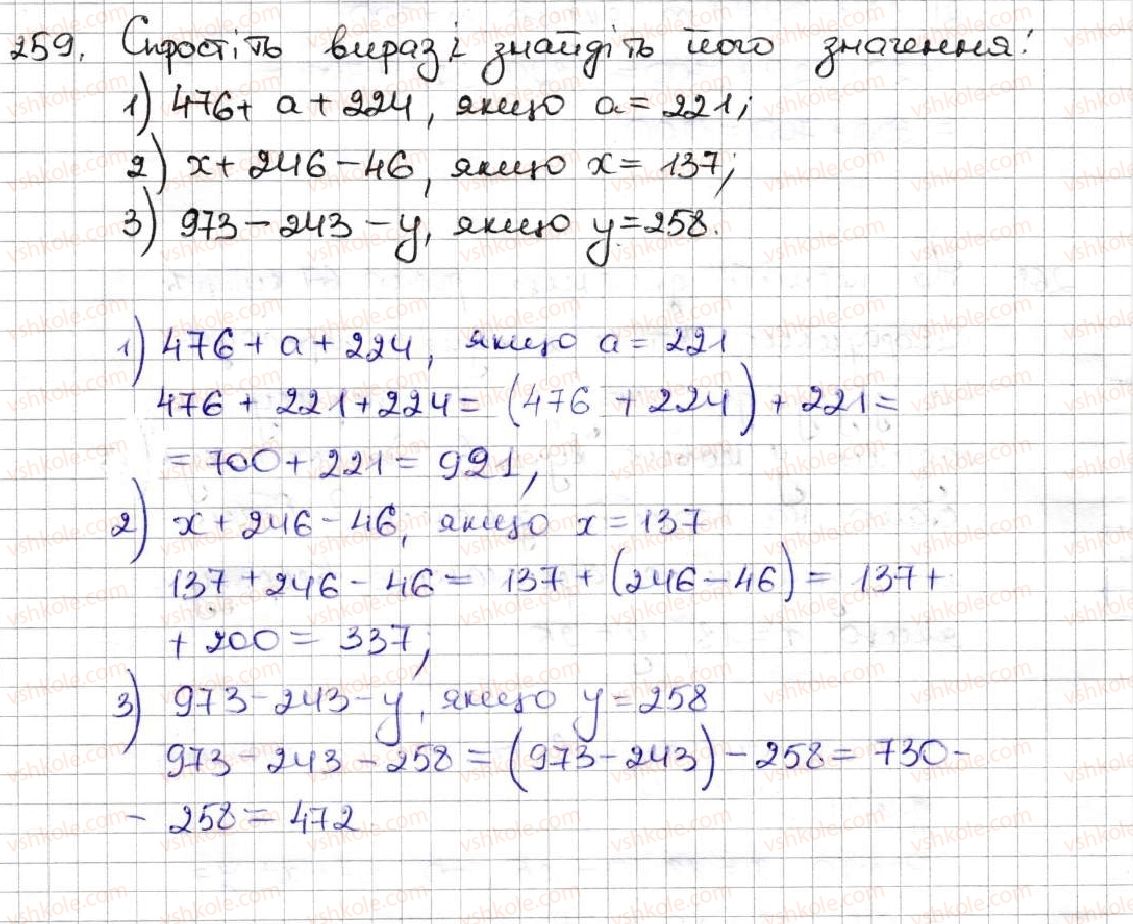 259. Спростіть вираз і знайдіть його значення:
1) 476 + a + 224, якщо a = 221;
2) x + 246 - 46, якщо x = 137;
3) 973 - 243 - y, якщо y = 258.
1) 476 + a + 224, якщо a = 221
476 + 221 + 224 = (476 + 224) + 221 =
= 700 + 221 = 921;
2) x + 246 - 46, якщо x = 137
137 + 246 - 46 = 137 + (246 - 46) = 137 +
+ 200 = 337;
3) 973 - 243 - y, якщо y = 258
973 - 243 - 258 = (973 - 243) - 258 = 730 -
- 258 = 472.
vshkole.com